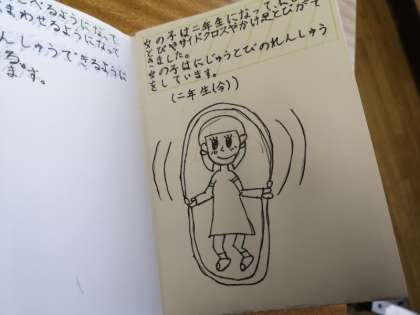 べるようになって
まわせるようになって
んしゅうできるように
る。
ます。
女の子は二年生になって、
とびやサイドクロスやかけ足とびがで
きました。
女の子はにじゅうとびのれんしゅう
をしています。
(二年生(今))